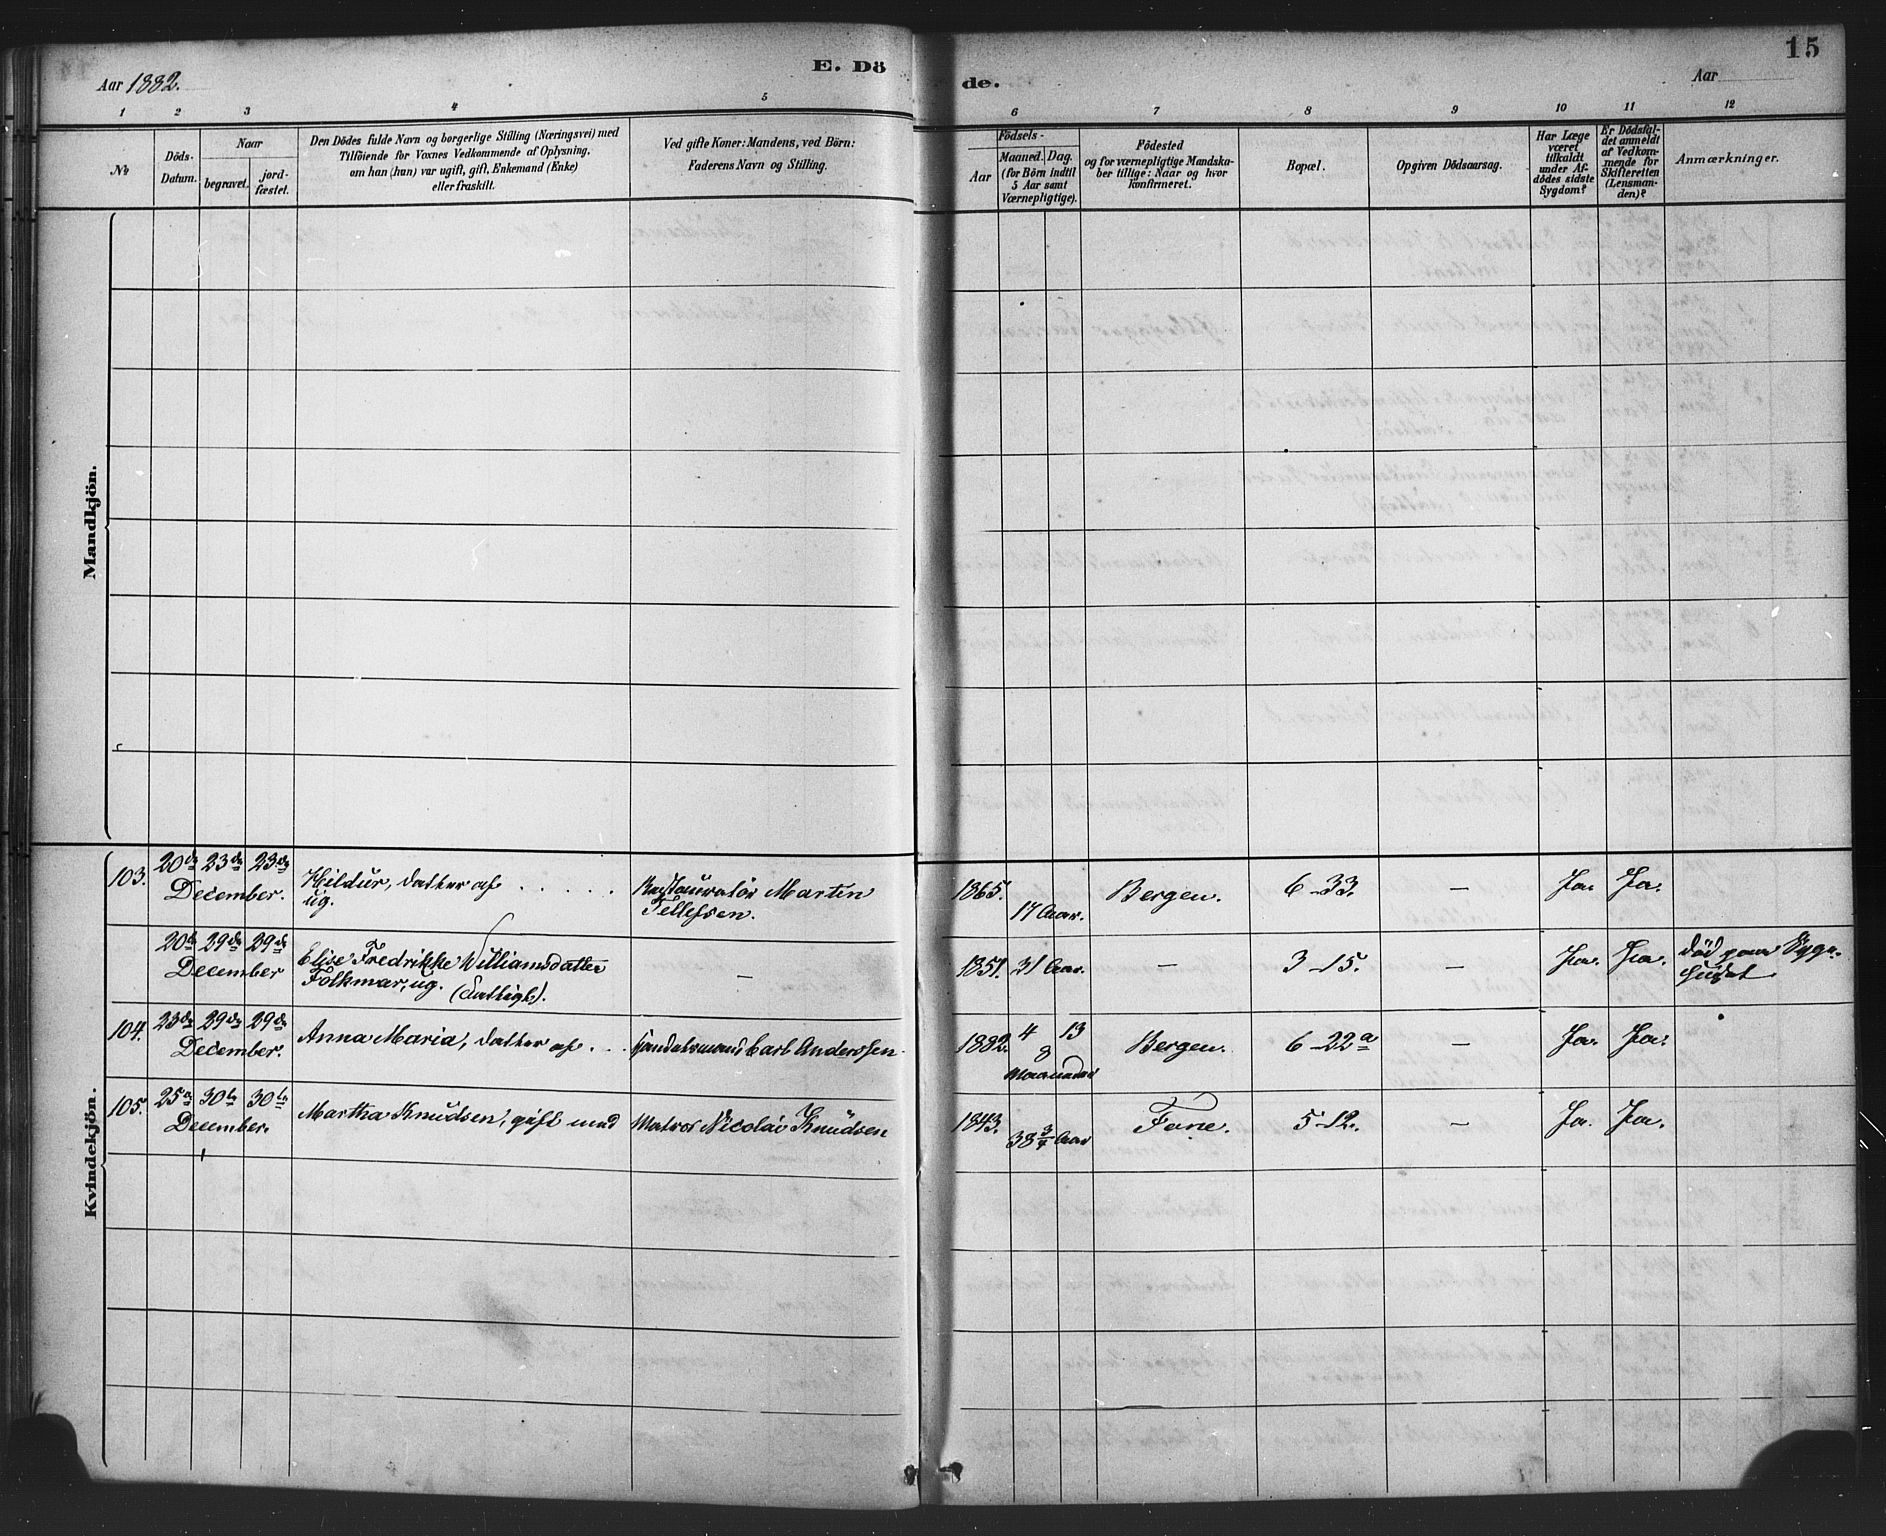 15
Aar 1882.
E. Dö
de.
Aar
1 2 3 4 5 6 7 8 9 10 11 12
No
Döds-
Datum.
Naar
begravet.
jord-
fæstet.
Den Dödes fulde Navn og borgerlige Stilling (Næringsvei) med
Tilföiende for Voxnes Vedkommende af Oplysning,
om han (hun) var ugift, gift, Enkemand (Enke)
eller fraskilt.
Ved gifte Koner: Mandens, ved Börn:
Faderens Navn og Stilling.
Födsels-
Aar
Maaned. Dag.
(for Börn indtil
5 Aar samt
Værnepligtige).
Födested
og for værnepligtige Mandska-
ber tillige: Naar og hvor
konfirmeret.
Bopæl.
Opgiven Dödsaarsag.
Har Læge
været
tilkaldt
under Af-
dödes sidste
Sygdom?
Er Dödsfal-
det anmeldt
af Vedkom-
mende for
Skifteretten
(Lensman-
den)?
Anmærkninger.
Mandkjön.
Kvindekjön.
103. 20de 23de 23de
December.
Hildur, datter af . . . . .
ug.
Restauratör Martin
Tellefsen.
1865. 17 Aar. Bergen. 6-33. — Ja. Ja.
20de 29de 29de
December
Elise Fredrikke Williamsdatter
Folkmar, ug. (Fattigl.).
—
1851. 31 Aar. — 3-15. — Ja. Ja. Död paa Syge-
huset
104. 23de 29de 29de
December.
Anna Maria, datter af . . .
Handelsmand Carl Anderssen.
1882. 4 13
8
Maaneder
Bergen. 6-22a — Ja. Ja.
105. 25de 30te 30te
December.
Martha Knudsen, gift med
Matros Nicolai Knudsen
1843. 38 3/4 Aar Fane. 5-12. — Ja. Ja.